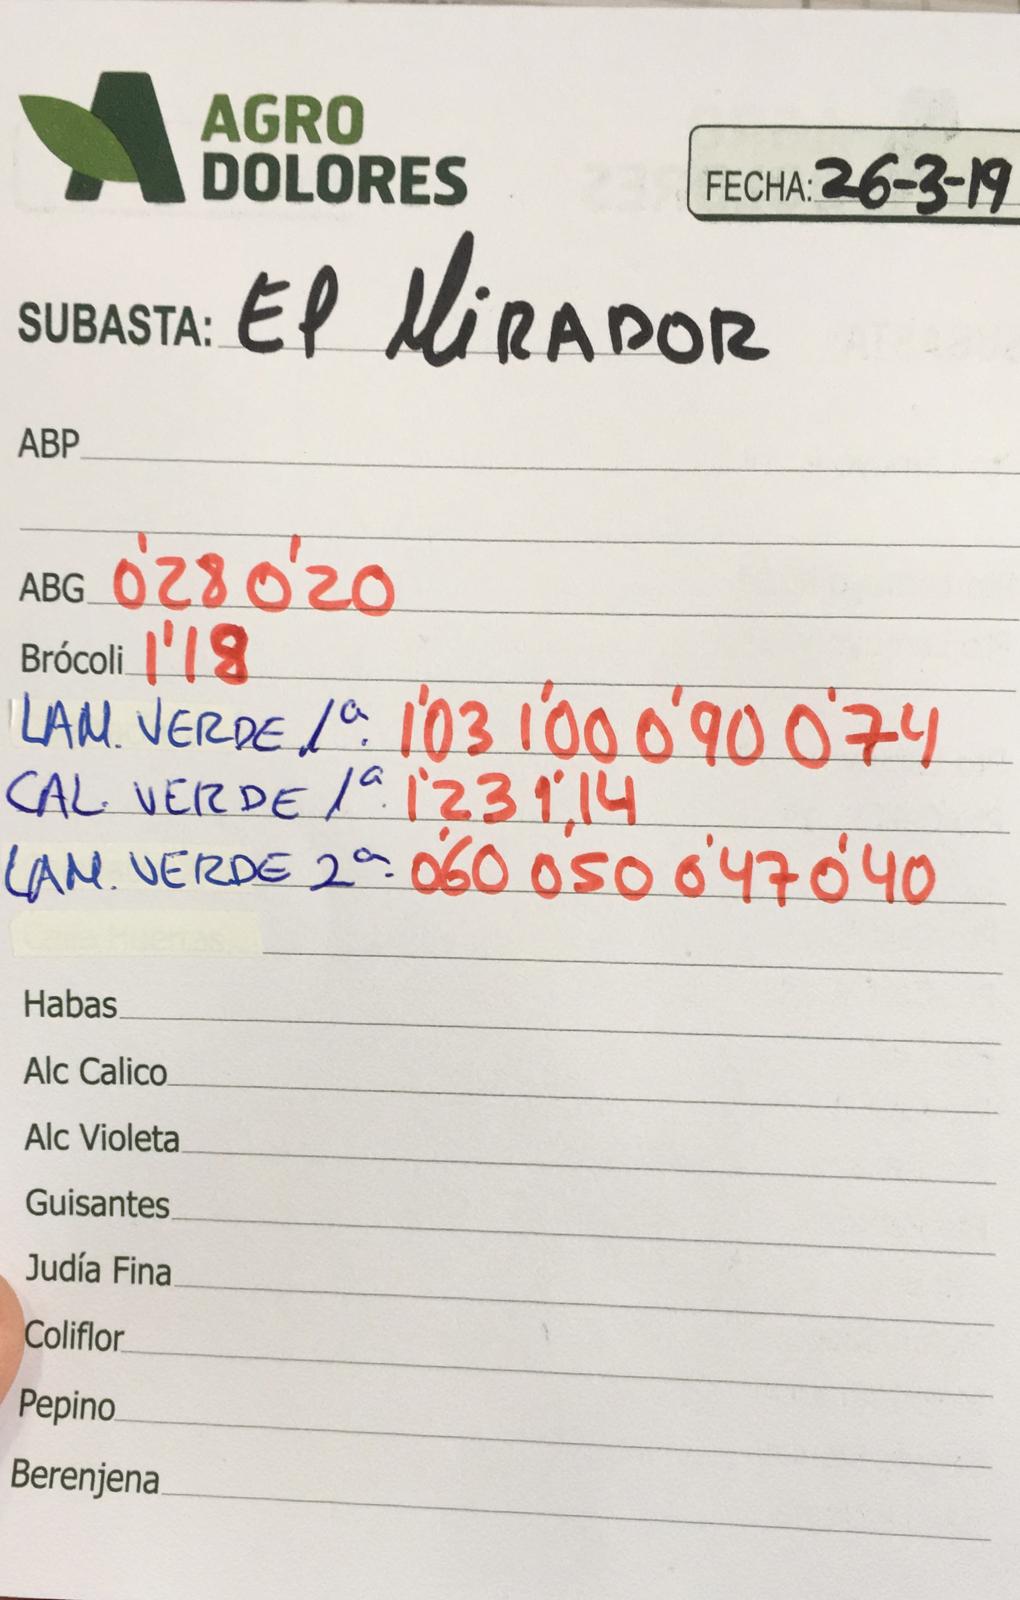 AGRO
DOLORES
FECHA: 26-3-19
SUBASTA: El MiRADOR
ABP
ABG 0'28 0'20
Brócoli 1'18
LAM. VERDE 1ª. 1'03 1'00 0'90 0'74
CAL. VERDE 1ª. 1'23 1',14
LAM. VERDE 2ª. 0'60 0'50 0'47 0'40
Habas
Alc Calico
Alc Violeta
Guisantes
Judía Fina
Coliflor
Pepino
Berenjena